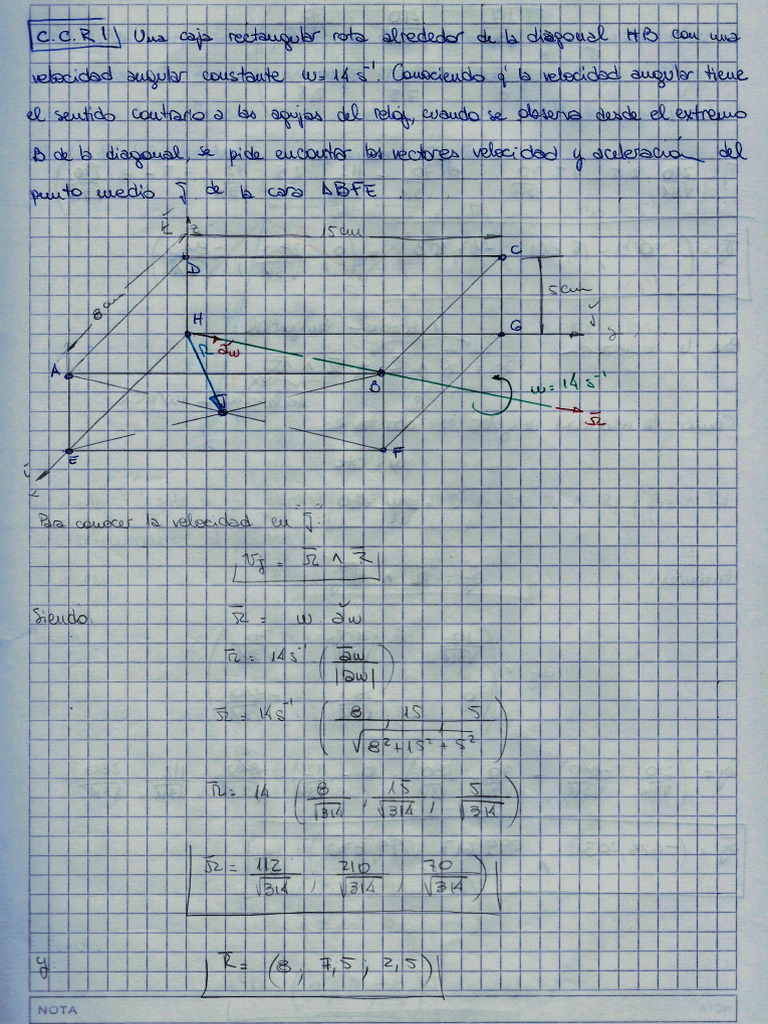 C.C.R 1 Una caja rectangular rota alrededor de la diagonal HB con una
velocidad angular constante w = 14 s⁻¹. Conociendo q' la velocidad angular tiene
el sentido contrario a las agujas del reloj, cuando se observa desde el extremo
B de la diagonal, se pide encontrar los vectores velocidad y aceleración del
punto medio J de la cara ABFE
z
15cm
D
C
8cm
5cm
H
G
R
y
A
B
w = 14 s⁻¹
J
Ω
E
F
x
Para conocer la velocidad en "J":
Vj = Ω ∧ R
Siendo.
Ω = w ǎw
Ω = 14 s⁻¹ (aw / |aw|)
Ω = 14 s⁻¹ (8, 15, 5 / √8²+15²+5²)
Ω = 14 (8/√314, 15/√314, 5/√314)
Ω = 112/√314, 210/√314, 70/√314)
y R = (8; 7,5; 2,5)
NOTA